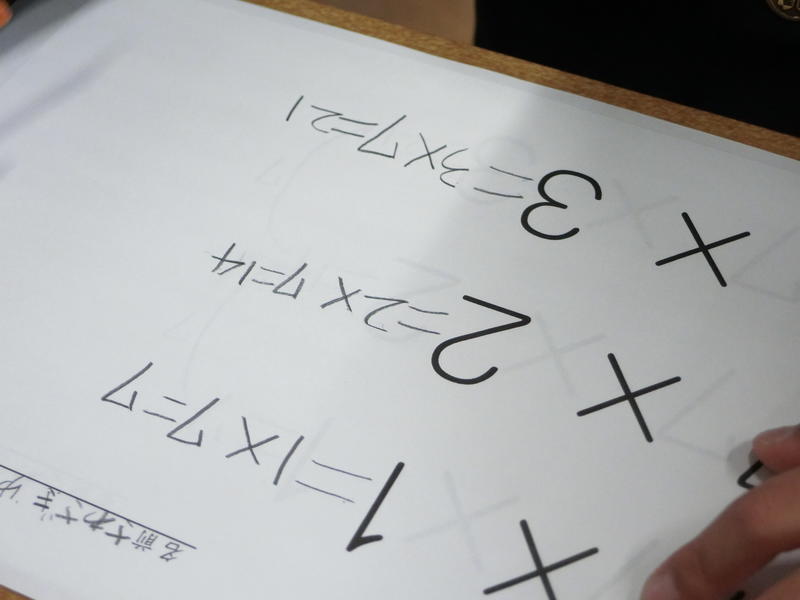 名前
×1=1×7=7
×2=2×7=14
×3=3×7=21